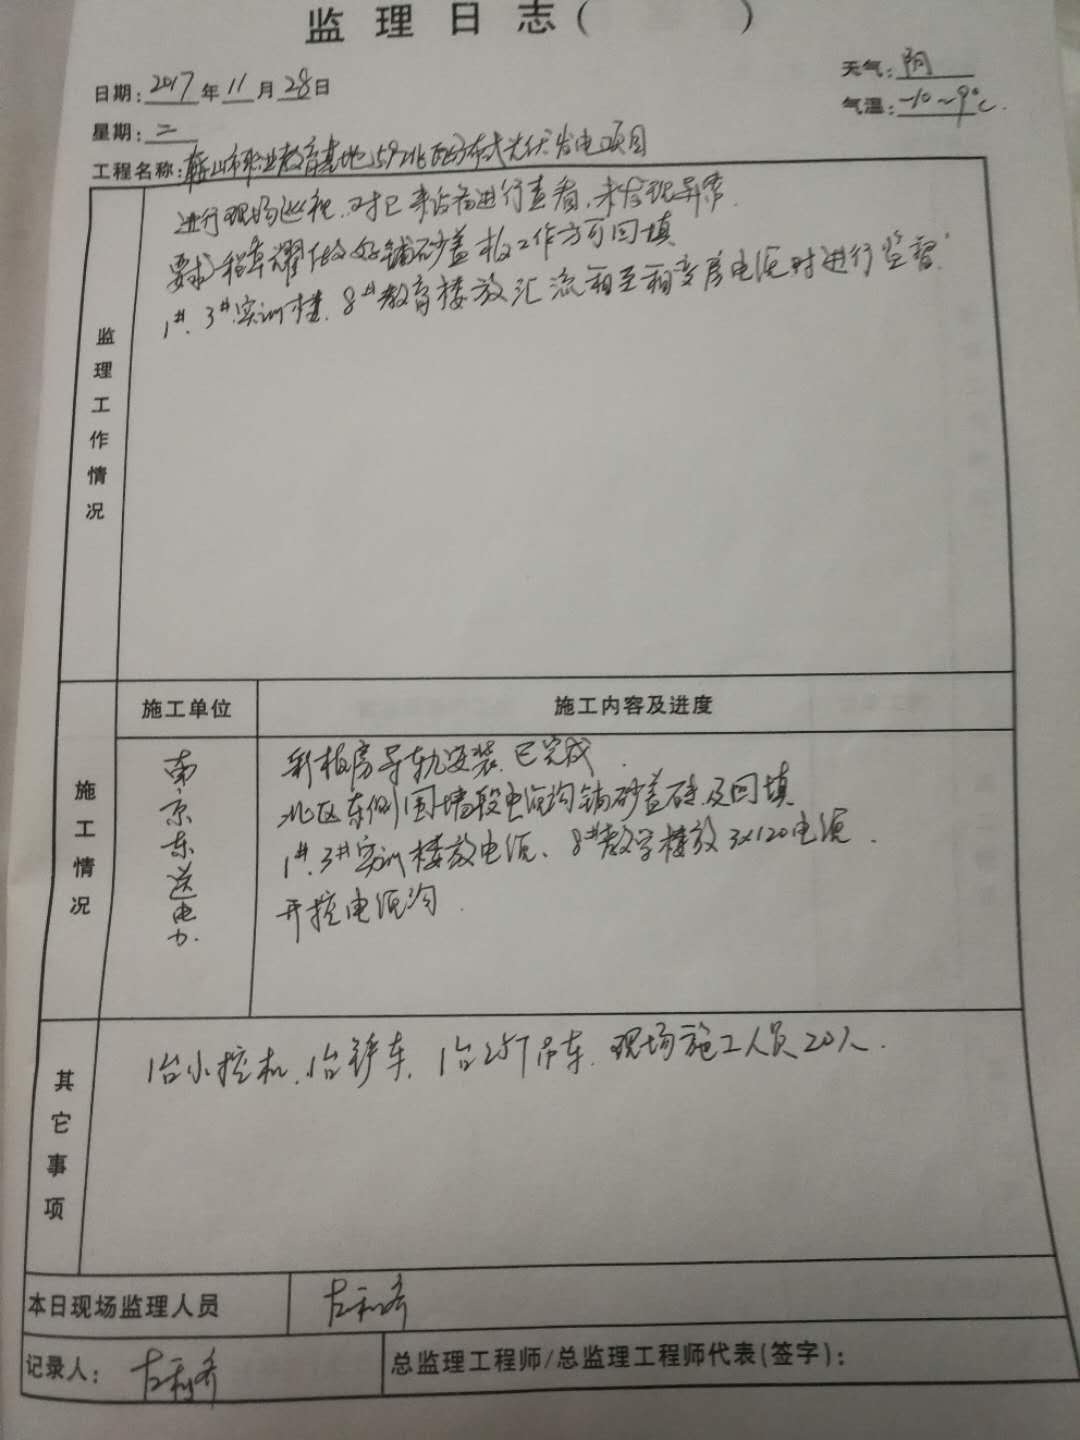 监理日志( )
日期: 2017 年 11 月 28 日
天气: 阴
星期: 二
气温: -10~9℃.
工程名称: 鞍山市职业教育基地5.92兆瓦分布式光伏发电项目
监理工作情况
进行现场巡视,对已来设备进行查看,未发现异常.
要求 做好铺砂盖板工作方可回填
1#、3#实训楼、8#教育楼放汇流箱至箱变房电缆时进行监督.
施工单位
施工内容及进度
施工情况
南京东送电力.
彩板房导轨安装已完成.
北区东侧围墙段电缆沟铺砂盖砖及回填
1#、3#实训楼放电缆、8#教学楼放3x120电缆.
开挖电缆沟.
其它事项
1台小挖机、1台铲车、1台25T吊车、现场施工人员20人.
本日现场监理人员
记录人:
总监理工程师/总监理工程师代表(签字):